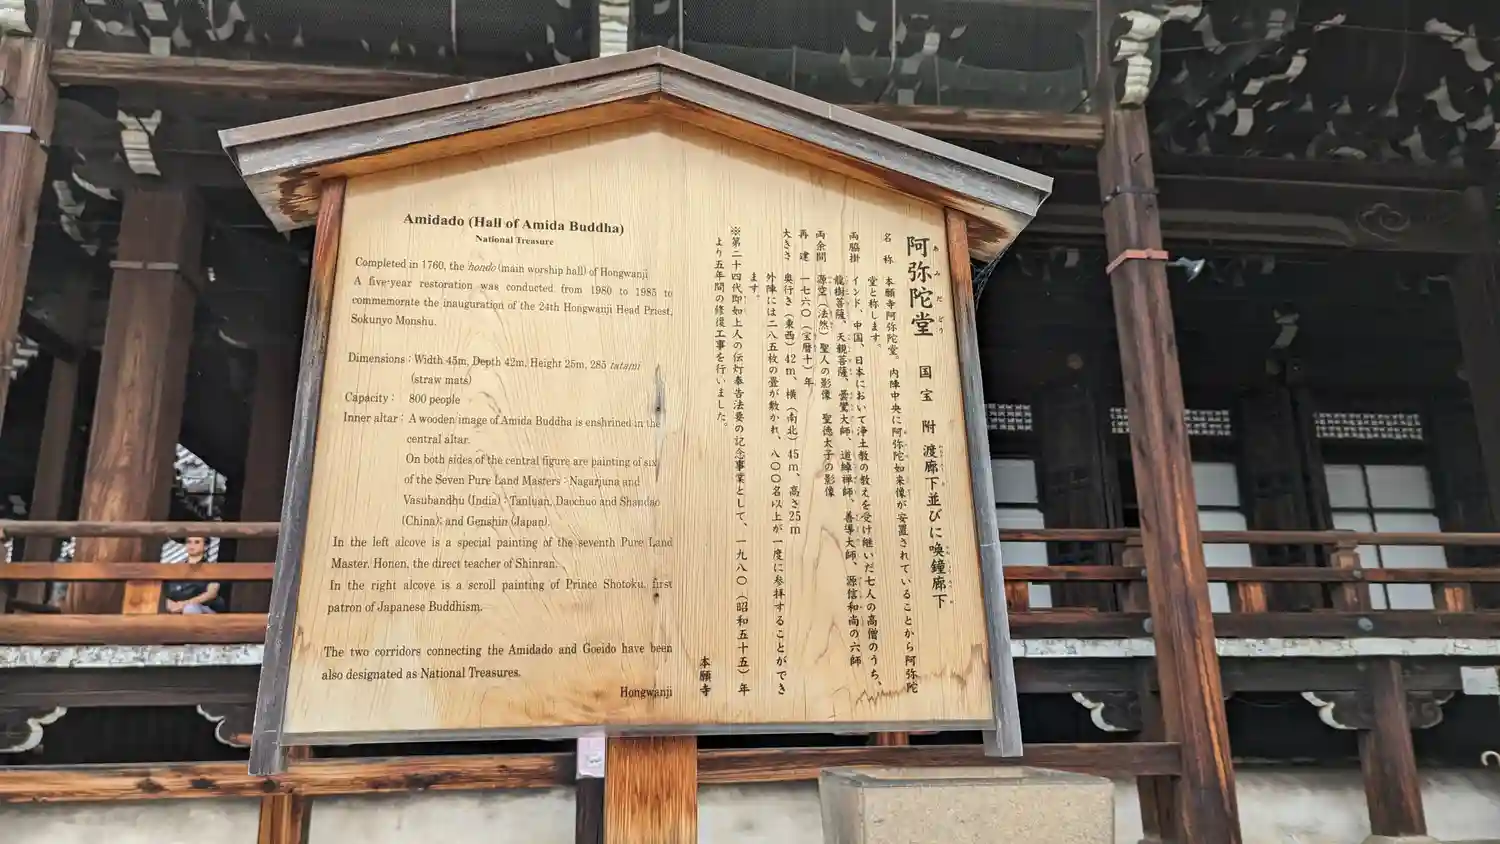 Amidado (Hall of Amida Buddha)
National Treasure
Completed in 1760, the hondo (main worship hall) of Hongwanji
A five-year restoration was conducted from 1980 to 1985 to
commemorate the inauguration of the 24th Hongwanji Head Priest,
Sokunyo Monshu.
Dimensions : Width 45m, Depth 42m, Height 25m, 285 tatami
(straw mats)
Capacity : 800 people
Inner altar : A wooden image of Amida Buddha is enshrined in the
central altar.
On both sides of the central figure are painting of six
of the Seven Pure Land Masters : Nagarjuna and
Vasubandhu (India) : Tanluan, Daochuo and Shandao
(China); and Genshin (Japan).
In the left alcove is a special painting of the seventh Pure Land
Master, Honen, the direct teacher of Shinran.
In the right alcove is a scroll painting of Prince Shotoku, first
patron of Japanese Buddhism.
The two corridors connecting the Amidado and Goeido have been
also designated as National Treasures.
Hongwanji
阿弥陀堂 国宝 附 渡廊下並びに喚鐘廊下
あみだどう
名称 本願寺阿弥陀堂。内陣中央に阿弥陀如来像が安置されていることから阿弥陀
堂と称します。
両脇掛 インド、中国、日本において浄土教の教えを受け継いだ七人の高僧のうち、
龍樹菩薩、天親菩薩、曇鸞大師、道綽禅師、善導大師、源信和尚の六師
両余間 源空(法然)聖人の影像 聖徳太子の影像
再建 一七六〇(宝暦十)年
大きさ 奥行き(東西)42m、横(南北)45m、高さ25m
外陣には二八五枚の畳が敷かれ、八〇〇名以上が一度に参拝することができ
ます。
※第二十四代即如上人の伝灯奉告法要の記念事業として、一九八〇(昭和五十五)年
より五年間の修復工事を行いました。
本願寺